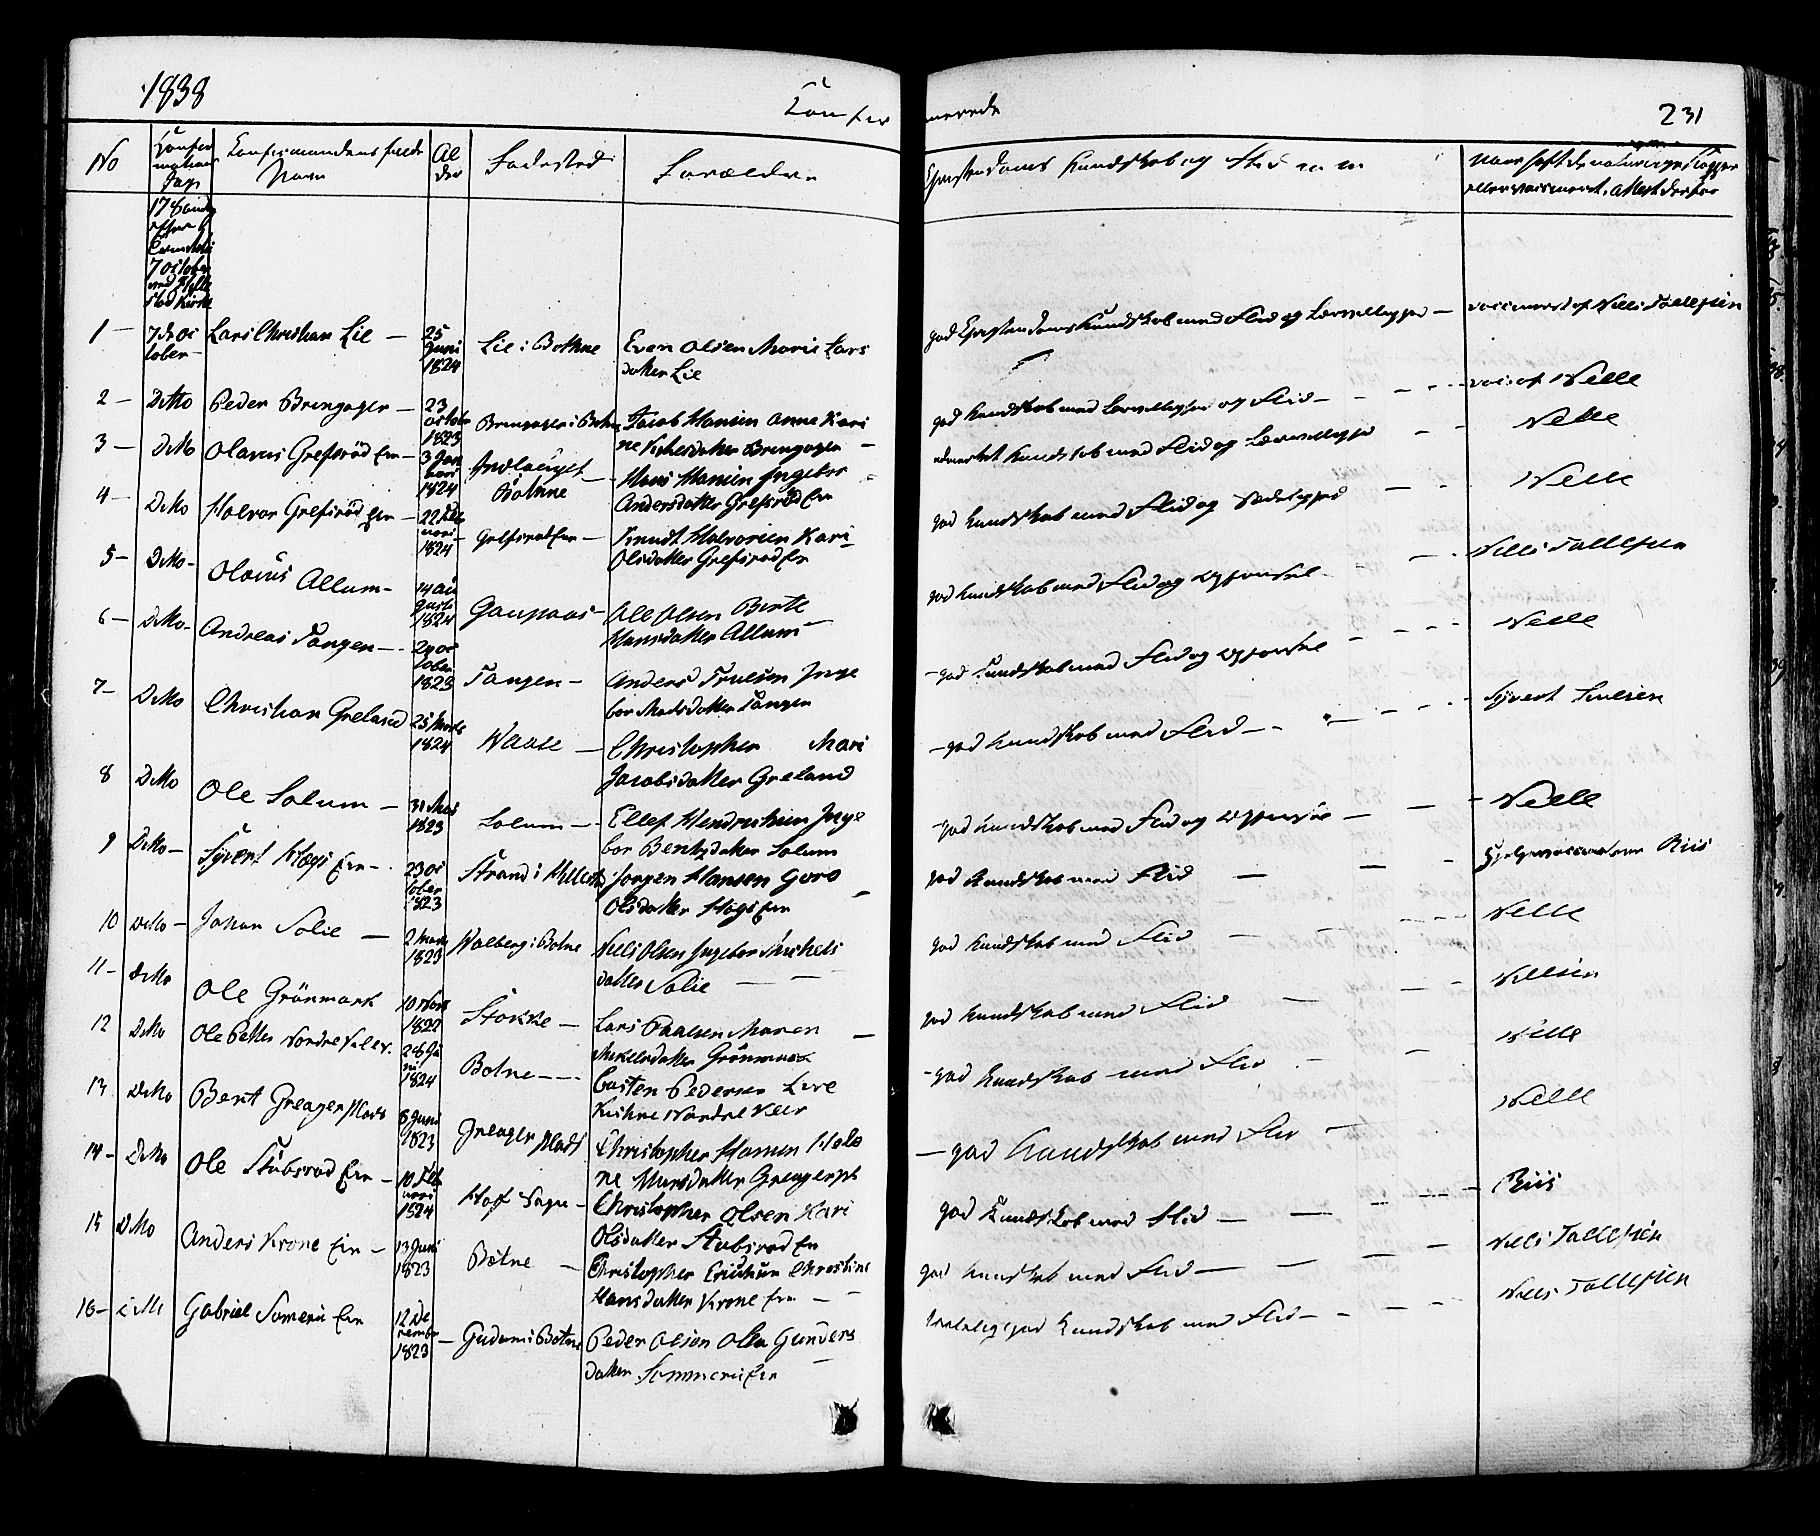 1838
Confir merede
231
No
Confir
mations
Dage
Confirmandens fulde
Navn
Al
der
Fødested
Forældre
Christendoms Kundskab og Flid
17 Søndag
efter
7 October
ved Hille
stad Kirke
1 - 7de Oc
tober - Lars Christian Lie - 25
Juni
1824 Lie i Bothne Even Olsen Marie Lars
datter Lie god Christendoms Kundskab med Flid og - vaccineret af Niels Tollefsen
2 - Ditto Peder Brengager - 23
October
1823 Brengager i Botne Jacob Hansen Anne Kari
ne datter Brengager god Kundskab med og Flid - vac: af Nelle
3 - Ditto Olavus Grefsrød Eie - 3 Jan
uari
1824 Bothne Hans Hansen Ingebor
Andersdatter Grefsrød Eie Kundskab med Flid og Nelle
4 - Ditto Halvor Grefsrød Eie - 22 Feb
ruari
1824 Grefsrød Eie - Knudt Halvorsen Kari
Olsdatter Grefsrød Eie god Kundskab med Flid og Nelle
5 - Ditto - Olavus Allum - 14 Au
gusti
1824 Gaupaas - Ole Olsen Berte
Hansdatter Allum god Kundskab med Flid og Niels Tollefsen
6 - Ditto - Andreas Tangen - 24 Oc
tober
1823 Tangen - Anders Truelsen Inge
bor Madsdatter Tangen - god Kundskab med Flid og Nelle
7 - Ditto Christian Greland 25 Marts
1824 Waale - Christopher Mari
Jacobsdatter Greland - god Kundskab med Flid - Syvert
8 Ditto Ole Solum - 31 Mai
1823 Solum - Ellef Hendrichsen Inge
bor Bentsdatter Solum - god Kundskab med Flid og Nelle
9 Ditto - Syvert Hægs Eie - 23 Oc
tober
1823 Strand i Hillesta Jørgen Hansen Goro
Olsdatter Høgs Eie god Kundskab med Flid - Riis
10 Ditto - Johan Solie - 2 Marts
1823 Walberg i Botne Niels Olsen Ingebor Michels
datter Solie god Kundskab med Flid - Nelle
11 - Ditto Ole Grönmark 10 Nov
1822 Stokke - Lars Paulsen Maren
Mickelsdatter Grönmark god Kundskab med Flid - Nielsen
12 Ditto Ole Petter Nordre 28 Ju
ni
1824 Botne - Casten Pedersen Live
Kirstine Nordre - god Kundskab med Flid Nelle
13 Ditto Bert Greager Plads 8 Juni
1823 Greager Plads Christopher Hansen Hele
ne Marisdatter Greager pl - god Kundskab med Flid Nelle
14 - Ditto Ole Stubsrød Eie - 10 Feb
ruari
1824 Hof Sogn - Christopher Olsen Kari
Olsdatter Stubsrød Eie god Kundskab med Flid - Riis
15 Ditto Anders Krone Eie - 13 Juni
1823 Botne - Christopher Erichsen Christine
Hansdatter Krone Eie god Kundskab med Flid - Niels Tollefsen
16 - Gabriel Eie 12 De
cember
1823 Botne Peder Olsen Olea Gunders
datter Eie god Kundskab med Flid - Niels Tollefsen